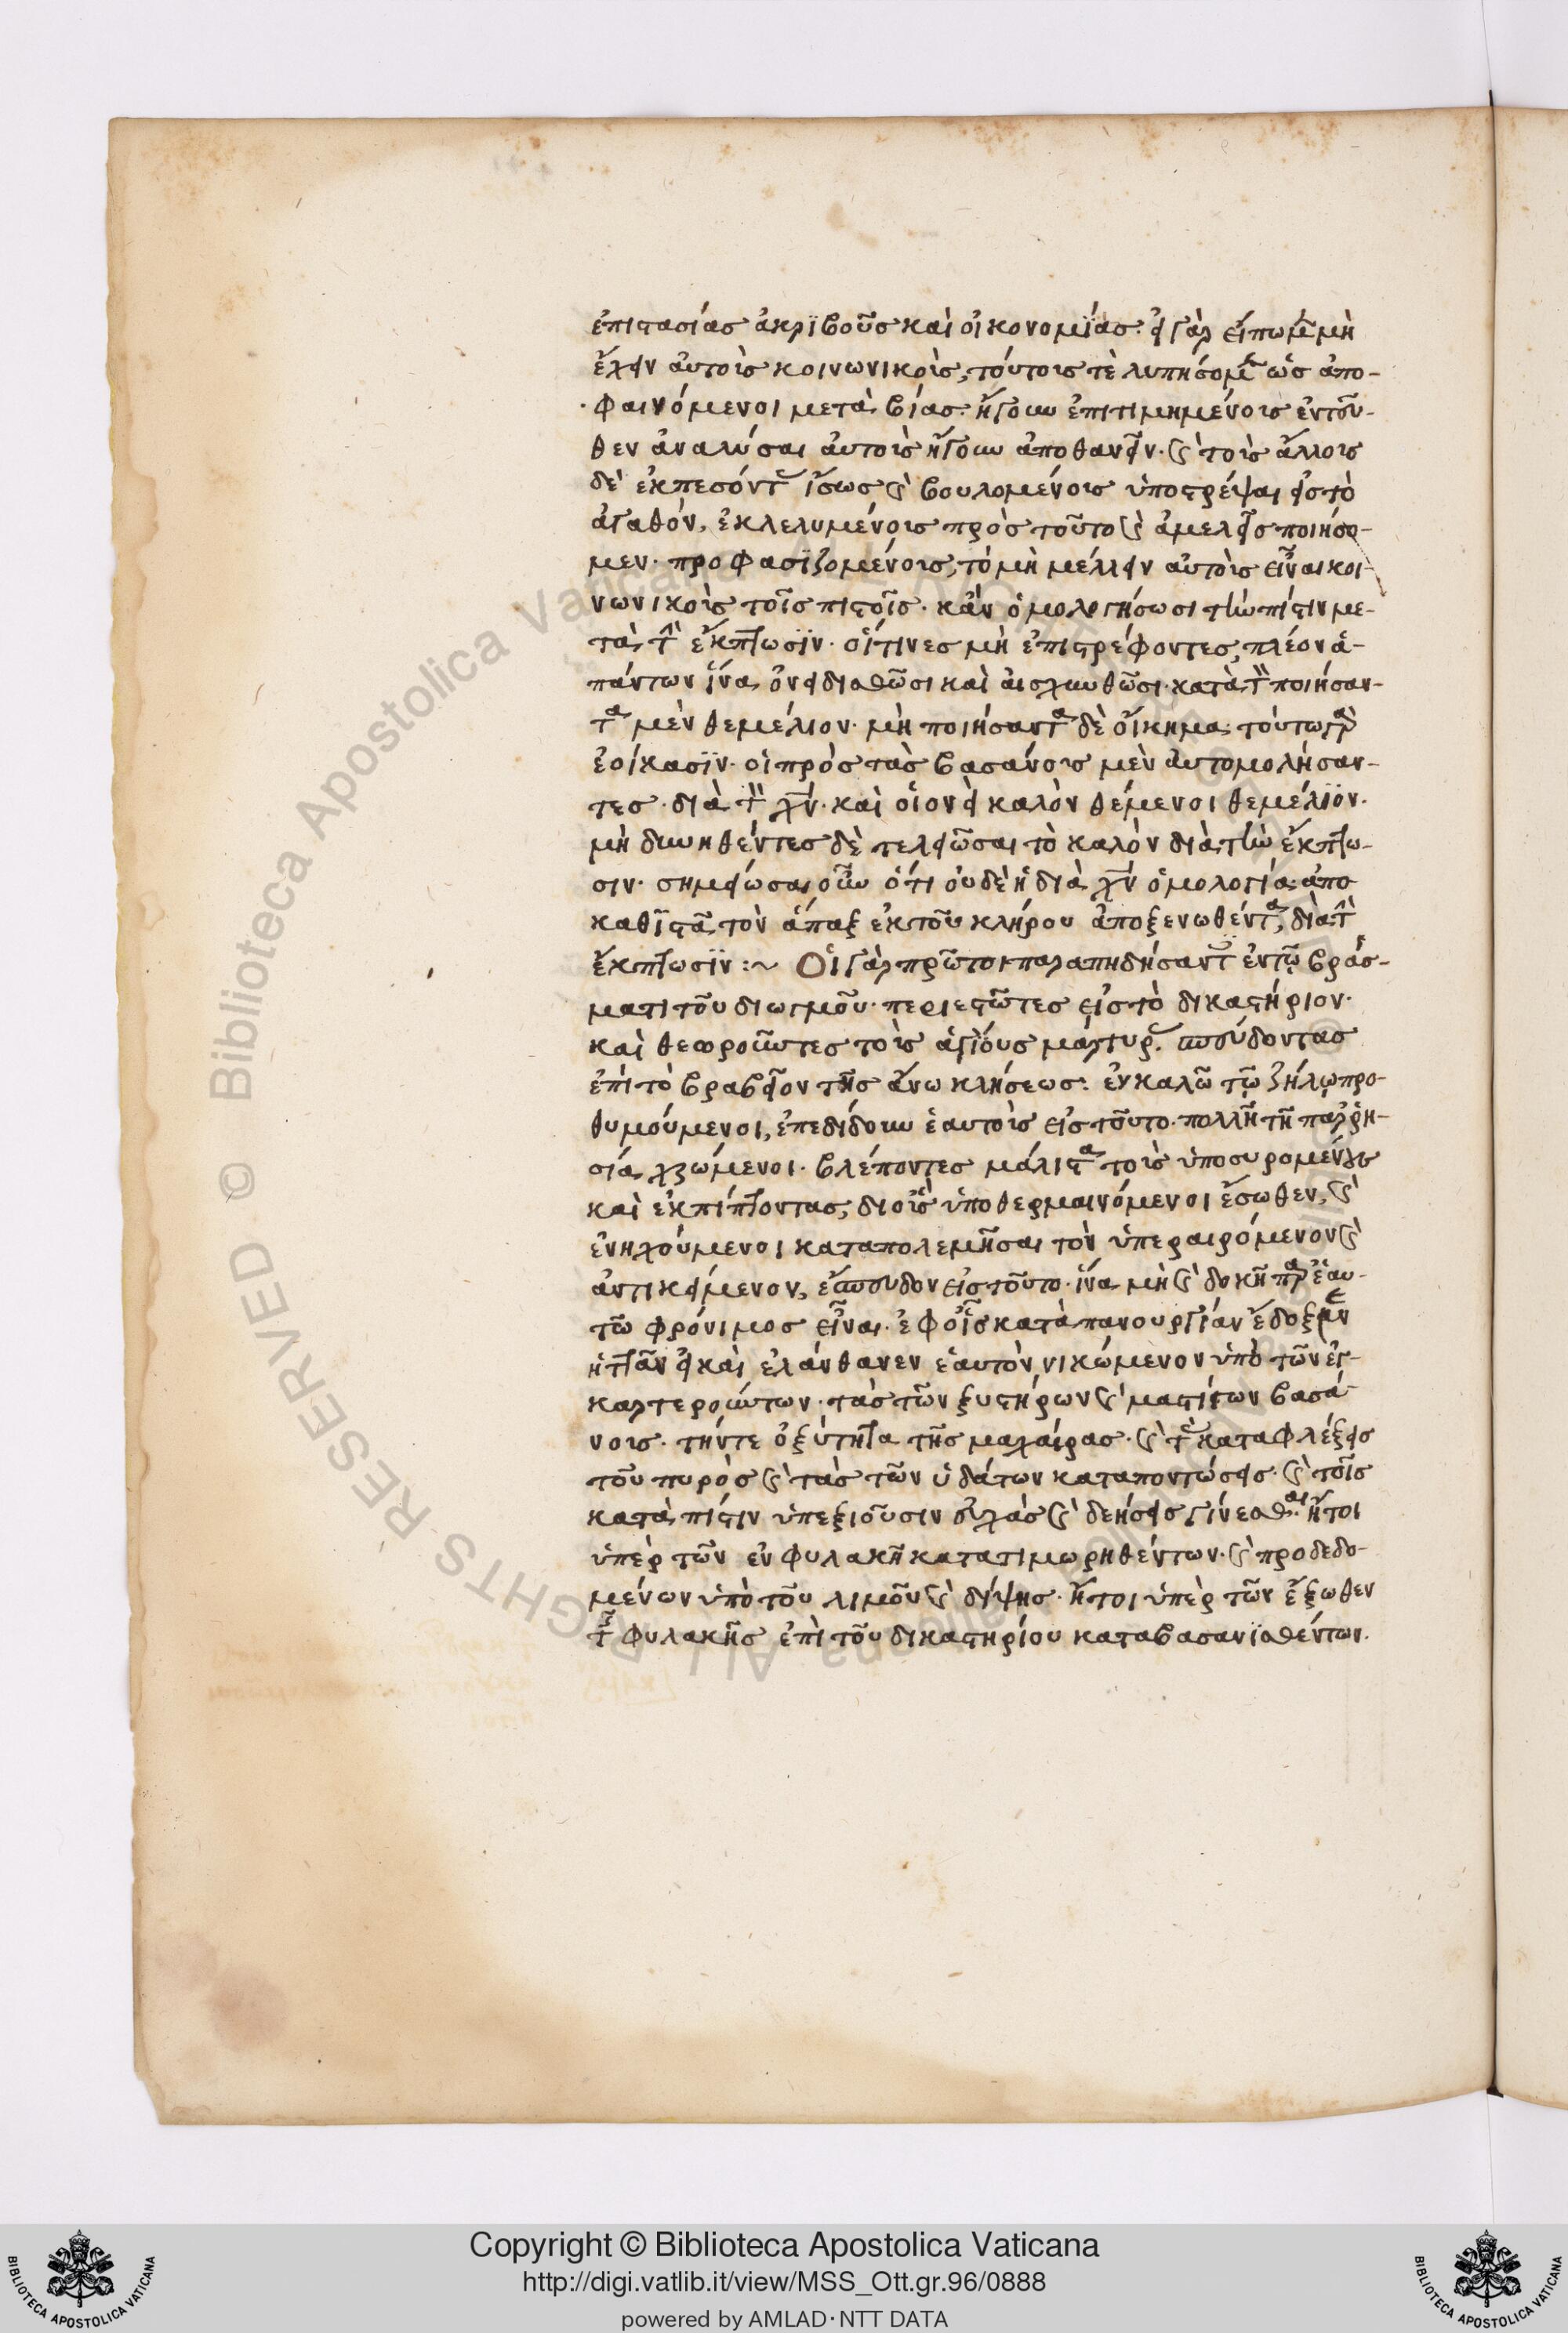 ἐπιστασίας ἀκριβοῦς καὶ οἰκονομίας. εἰ γὰρ εἴπωμεν μὴ
ἔχειν αὐτοὺς κοινωνικοὺς, τούτους τὲ λυπήσομεν ὡς ἀπο-
φαινόμενοι μετὰ βίας. ἤγουν ἐπιτιμημένους ἐντεῦ-
θεν ἀναλῦσαι αὐτοὺς ἤγουν ἀποθανεῖν. καὶ τοὺς ἄλλους
δὲ ἐκπεσόντας ἴσως καὶ βουλομένους ὑποστρέψαι εἰς τὸ
ἀγαθόν, ἐκλελυμένους πρὸς τοῦτο καὶ ἀμελεῖς ποιήσο-
μεν. προφασϊζομένους, τὸ μὴ μέλλειν αὐτοὺς εἶναι κοι-
νωνικοὺς τοῖς πιστοῖς. κἂν ὁμολογήσωσι τὴν πίστιν με-
τὰ τὴν ἔκπτωσϊν. οἵτινες μὴ ἐπιστρέφοντες, πλέον ἁ-
πάντων ἵνα ὀνειδισθῶσι καὶ αἰσχυνθῶσι. κατὰ τὸν ποιήσαν-
τα μὲν θεμέλιον. μὴ ποιήσαντα δὲ οἴκημα. τούτω γὰρ
ἐοίκασϊν. οἱ πρὸς τὰς βασάνους μὲν αὐτομολήσαν-
τες. διὰ τὸν χν. καὶ οἱονεὶ καλὸν θέμενοι θεμέλϊον.
μὴ δυνηθέντες δὲ τελειῶσαι τὸ καλὸν διὰ τὴν ἔκπτω-
σιν. σημείωσαι οὖν ὅτι οὐδὲ ἡ διὰ χν ὁμολογία ἀπο
καθϊστᾶ τὸν ἅπαξ ἐκ τοῦ κλήρου ἀποξενωθέντα, διὰ τὴν
ἔκπτωσϊν :~ Οἱ γὰρ πρῶτοι παραπηδήσαντες ἐν τῷ βράσ-
ματι τοῦ διωγμοῦ. περιεστῶτες εἰς τὸ δικαστήριον.
καὶ θεωροῦντες τοὺς ἁγϊους μάρτυρας. σπεύδοντας
ἐπὶ τὸ βραβεῖον τῆς ἄνω κλήσεως. ἐν καλῶ τῷ ζήλῳ προ-
θυμούμενοι, ἐπεδίδουν ἑαυτοὺς εἰς τοῦτο. πολλῇ τῇ παρρη-
σία χρώμενοι. βλέποντες μάλιστα τοὺς ὑποσυρομένους
καὶ ἐκπίπτοντας, δι οὓς ὑποθερμαινόμενοι ἔσωθεν, καὶ
ἐνηχούμενοι καταπολεμῆσαι τὸν ὑπεραιρόμενον καὶ
ἀντικείμενον, ἔσπευδον εἰς τοῦτο. ἵνα μὴ καὶ δοκῇ παρ ἑαυ-
τῶ φρόνιμος εἶναι. ἐφ οἷς κατὰ πανουργίαν ἔδοξεν
ἡττᾶν εἰ καὶ ἐλάνθανεν ἑαυτὸν νικώμενον ὑπὸ τῶν ἐγ-
καρτερούντων. τὰς τῶν ξυστήρων καὶ μαστίγων βασά-
νους. τήν τε ὀξύτητα τῆς μαχαίρας. καὶ τὰς καταφλέξεις
τοῦ πυρὸς καὶ τὰς τῶν ὑδάτων καταποντώσεις. καὶ τοῖς
κατὰ πίστιν ὑπεξιοῦσιν εὐχὰς καὶ δεήσεις γίνεσθαι. ἤτοι
ὑπὲρ τῶν ἐν φυλακῇ κατατιμωρηθέντων. καὶ προδεδο-
μένων ὑπὸ τοῦ λιμοῦ καὶ δίψης. ἤτοι ὑπὲρ τῶν ἔξωθεν
τῆς φυλακῆς ἐπὶ τοῦ δικαστηρίου καταβασανϊσθέντων.
© Biblioteca Apostolica Vaticana ALL RIGHTS RESERVED
BIBLIOTECA APOSTOLICA VATICANA
Copyright © Biblioteca Apostolica Vaticana
http://digi.vatlib.it/view/MSS_Ott.gr.96/0888
powered by AMLAD·NTT DATA
BIBLIOTECA APOSTOLICA VATICANA